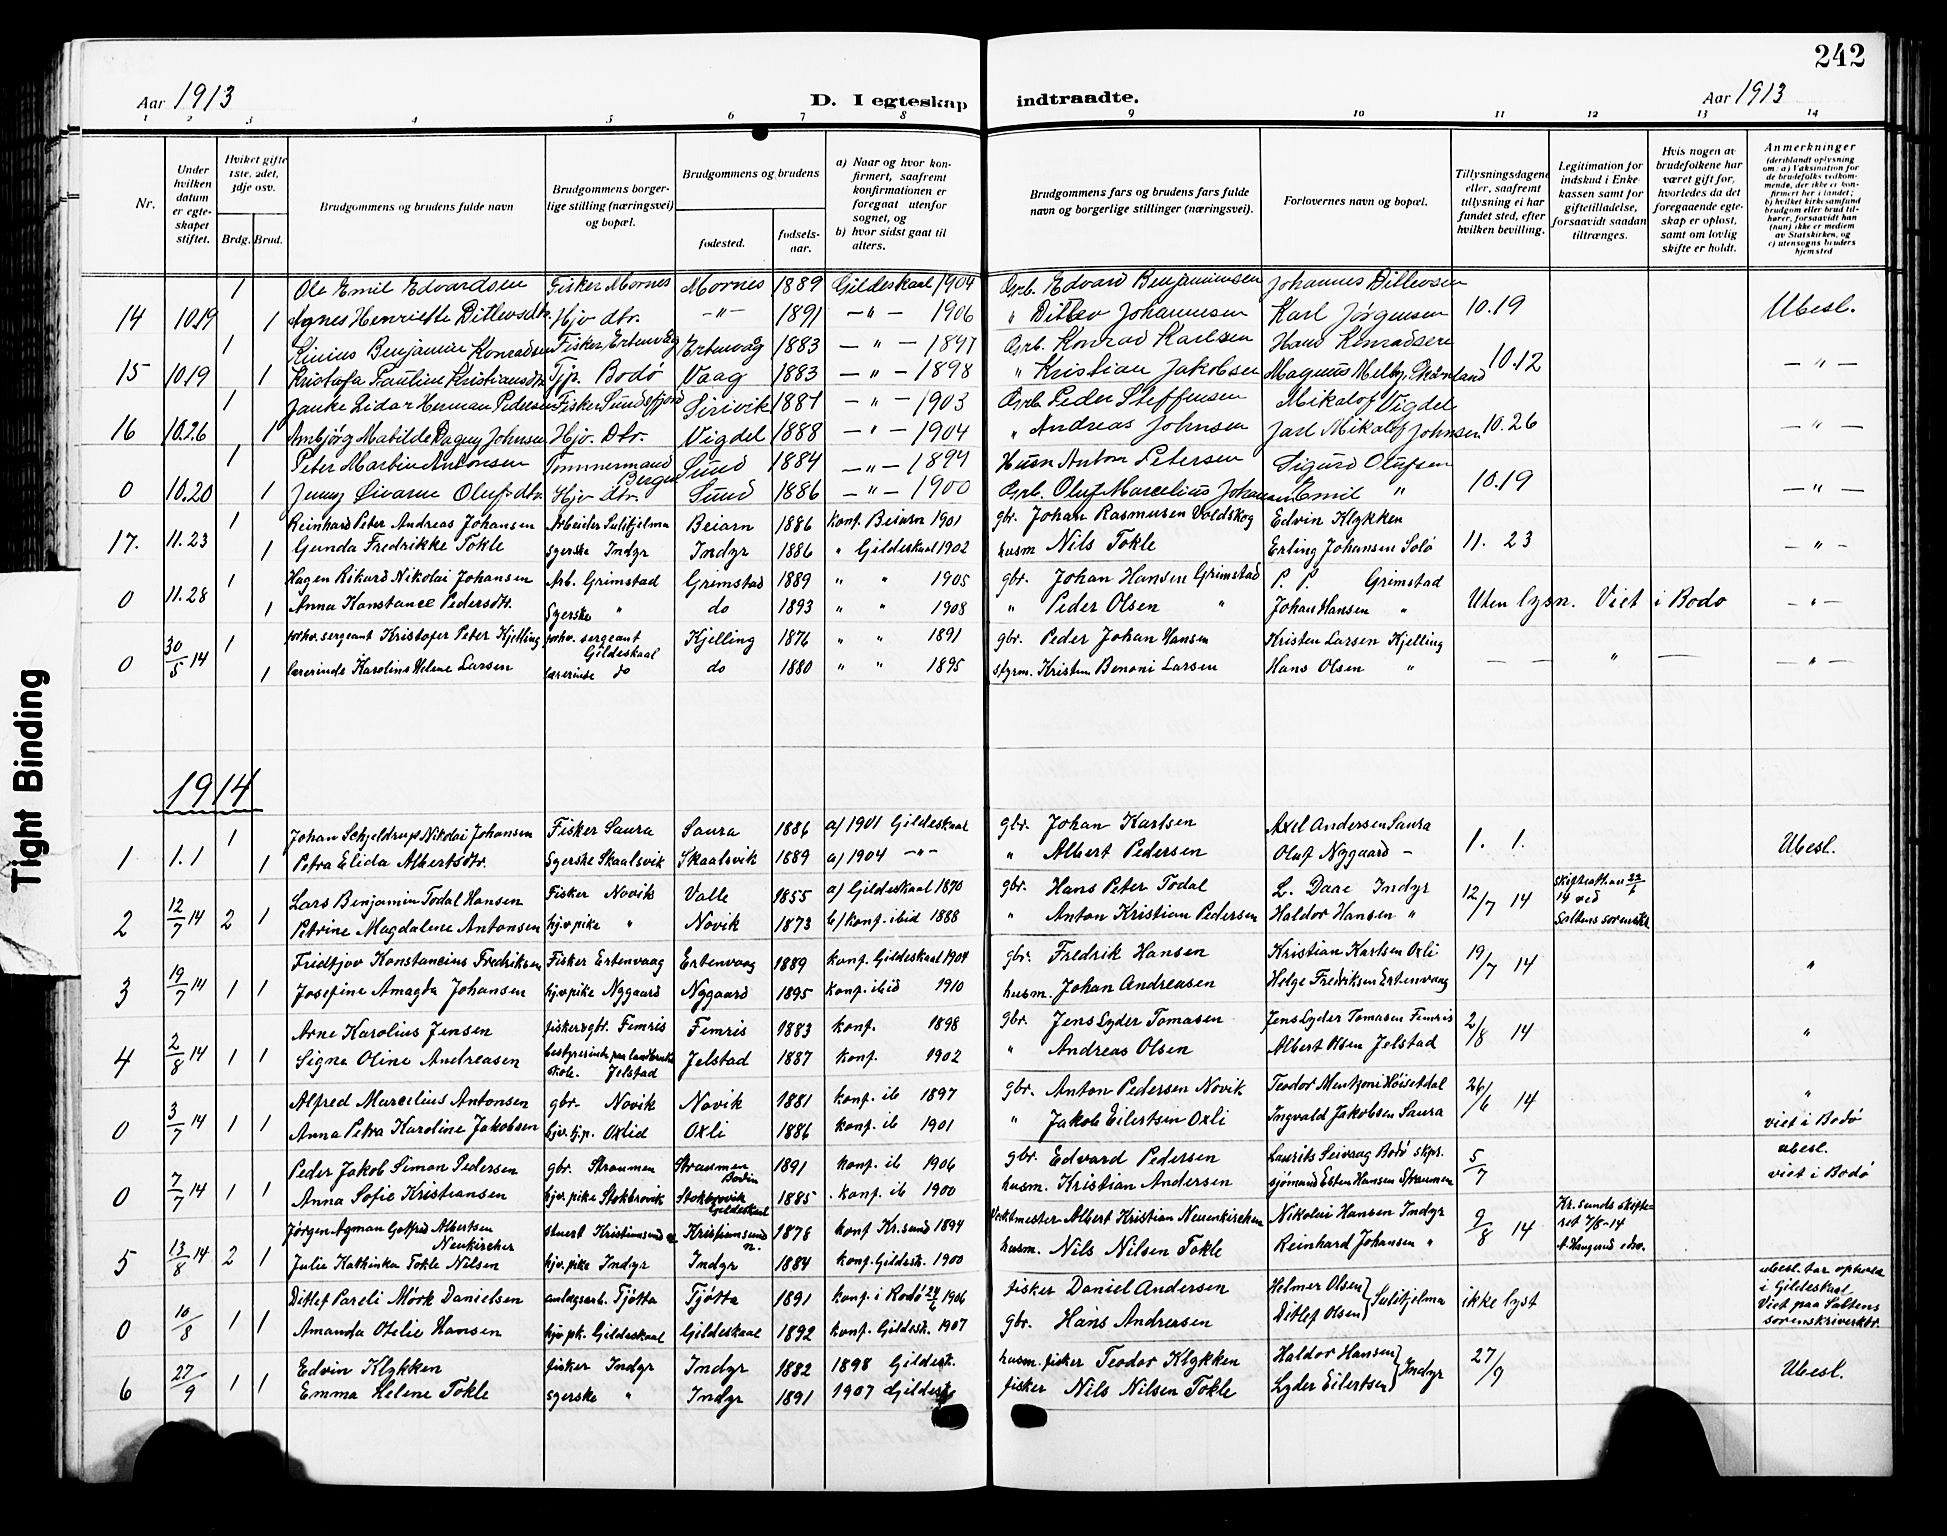 242
Aar 1913 D. I egteskap indtraadte. Aar 1913
1 2 3 4 5 6 7 8 9 10 11 12 13 14
Nr.
Under hvilken datum er egteskapet stiftet.
Hviket gifte 1ste, 2det, 3dje osv.
Brdg. Brud.
Brudgommens og brudens fulde navn
Brudgommens borgerlige stilling (næringsvei) og bopæl.
Brudgommens og brudens
fødested. fødselsaar.
a) Naar og hvor konfirmert, saafremt konfirmationen er foregaat utenfor sognet, og
b) hvor sidst gaat til alters.
Brudgommens fars og brudens fars fulde navn og borgerlige stillinger (næringsvei).
Forlovernes navn og bopæl.
Tillysningsdagene eller, saafremt tillysning ei har fundet sted, efter hvilken bevilling.
Legitimation for indskud i Enkekassen samt for giftetilladelse, forsaavidt saadan tiltrænges.
Hvis nogen av brudefolkene har været gift før, hvorledes da det foregaaende egteskap er opløst, samt om lovlig skifte er holdt.
Anmerkninger (deriblandt oplysning om: a) Vaksination for de brudefolks vedkommende, der ikke er konfirmert her i landet; b) hvilket kirkesamfund brudgom eller brud tilhører, forsaavidt han (hun) ikke er medlem av Statskirken, og c) utensogns bruders hjemsted
1 Ole Emil Edvardsen Fisker Mornes Mornes 1889 Gildeskaal 1904 Grb. Edvard Benjaminsen Johannes Ditlevsen
14 10.19 1 Agnes Henriette Ditlevsdtr. Hjv dtr. —"— 1891 —"— 1906 " Ditlev Johannesen Karl Jørgensen 10.19 Ubesl.
1 Benjamin Konradsen Fisker, Ertenvåg Ertenvåg 1883 —"— 1897 Grb. Konrad Karlsen Hans Konradsen
15 10.19 1 Kristofa Pauline Kristiansdtr. Tjp. Bodø Vaag 1883 —"— 1898 " Kristian Jakobsen Magnus Melby, 10.12 —"—
1 Lidar Herman Pedersen Fisker Sundsfjord Sirivik —"— 1903 Grb. Peder Steffensen Mikalof Vigdel
16 10.26 1 Ambjørg Matilde Dagny Johnsen Hjv. Dtr. Vigdel 1888 —"— 1904 " Andreas Johnsen Jarl Mikalof Johnsen 10.26 —"—
1 Peter Martin Antonsen Tømmermand Bergen Sund 1884 —"— 1894 Husm Anton Petersen Sigurd Olufsen
0 10.20 1 Jenny Oluf dtr. Hjv dtr. Sund 1886 —"— 1900 Grb. Oluf Marcelius Johansen Emil " 10.19 —"—
1 Reinhard Peter Andreas Johansen Arbeider Sulitjelma Beiarn 1886 konf. Beiarn 1901 gbr. Johan Rasmusen Voldskog Edvin Klykken
17. 11.23 1 Gunda Fredrikke Tokle syerske Indyr Indyr 1886 " Gildeskaal 1902 husm Nils Tokle Erling Johansen Solø 11. 23 —"—
1 Hagen Rikard Nikolai Johansen Arb. Grimstad Grimstad 1889 " " 1905 gbr. Johan Hansen Grimstad P. P. Grimstad
0 11.28 1 Anna Konstance Pedersdtr. Syerske " do 1893 " " 1908 " Peder Olsen " Johan Hansen " Uten lysn. Viet i Bodø —"—
1 forhv. sergeant Kristofer Peter Kjelling forhv. sergeant Gildeskaal Kjelling 1876 " " 1891 gbr. Peder Johan Hansen Kristen Larsen Kjelling
0 30/5 14 1 lærerinde Karolina Helene Larsen lærerinde do do 1880 " " 1895 styrm. Kristen Benoni Larsen Hans Olsen " — — " — —"—
1914
1 Johan Schjeldrup Nikolai Johansen Fisker Saura Saura 1886 a) 1901 Gildeskaal gbr. Johan Karlsen Axel Andersen Saura
1 1.1 1 Petra Elida Albertsdtr. Syerske Skaalsvik Skaalsvik 1889 a) 1904 —"— " Albert Pedersen Oluf Nygaard — 1. 1. Ubesl.
Lars Benjamin Todal Hansen Fisker Novik Valle 1855 a) Gildeskaal 1870 gbr. Hans Peter Todal L. Daae Indyr skifteatt. 22/6 14 ved Saltens sorenskr.
2 12/7 14 2 1 Petrine Magdalene Antonsen hjv. pike " Novik 1873 b) konf. ibid 1888 " Anton Kristian Pedersen Haldor Hansen " 12/7 14
Fridtjov Konstancius Fredriksen Fisker Ertenvaag Ertenvaag 1889 konf. Gildeskaal 1904 gbr. Fredrik Hansen Kristian Karlsen Oxli
3 19/7 14 1 1 Josefine Amagda Johansen hjv. pike Nygaard Nygaard 1895 konf. ibid 1910 husm. Johan Andreasen Helge Fredriksen Ertenvaag 19/7 14 "
Arne Karolius Jensen fisker & gbr. Femris Femris 1883 konf. 1898 gbr. Jens Lyder Tomasen Jens Lyder Tomasen Femris
4 2/8 14 1 1 Signe Oline Andreasen bestyrerinde paa landbruksskole. Jelstad Jelstad 1887 konf. 1902 " Andreas Olsen Albert Olsen Jelstad 2/8 14 "
Alfred Marcelius Antonsen gbr. Novik Novik 1881 konf. ib 1897 gbr. Anton Pedersen Novik Teodor Mentzoni Høisetdal
0 3/7 14 1 1 Anna Petra Karoline Jakobsen hjv. tjp. Oxlid Oxli 1886 konf. ib 1901 " Jakob Eilertsen Oxli Ingvald Jakobsen Saura 26/6 14 " viet i Bodø
Peder Jakob Simon Pedersen gbr. Straumen Straumen Bodin 1891 konf. ib 1906 gbr. Edvard Pedersen Laurits Seivaag Bodø skpr. ubesl.
0 7/7 14 1 1 Anna Sofie Kristiansen hjv. pike Stokbrovik Stokbrovik Gildeskaal 1885 konf. ib 1900 husm. Kristian Andersen sjømand Esten Hansen Straumen 5/7 viet i Bodø
Jørgen Agman Gotfred Albertsen Neukircher stuert Kristiansund n. Kristiansund n. 1878 konf Kr.sund 1894 Verktmester Albert Kristian Neuenkirchen Nikolai Hansen Indyr Kr.sunds skifteret 7/8-14
5 13/8 14 2 1 Julie Kathinka Tokle Nilsen hjv. pike Indyr Indyr 1884 konf. Gildesk. 1900 husm. Nils Nilsen Tokle Reinhard Johansen " 9/8 14
Ditlef Pareli Mörk Danielsen anlægsarb. Tjøtta Tjøtta 1891 konf. i Bodø 24/6 1906 fisker Daniel Andersen Helmer Olsen } Sulitjelma ubesl. har ophold i Gildeskaal
0 10/8 1 1 Amanda Otelie Hansen hjv. pk. Gildeskaal Gildeskaal 1892 konf. Gildesk. 1907 gbr. Hans Andreasen Ditlef Olsen ikke lyst Viet paa Saltens sorenskriverktr.
Edvin Klykken fisker Indyr Indyr 1882 1898 Gildesk. husm. fisker Teodor Klykken Haldor Hansen } Indyr
6 27/9 1 1 Emma Helene Tokle syerske " Indyr 1891 1907 Gildesk. fisker Nils Nilsen Tokle Lyder Eilertsen 27/9 Ubesl.
Tight Binding